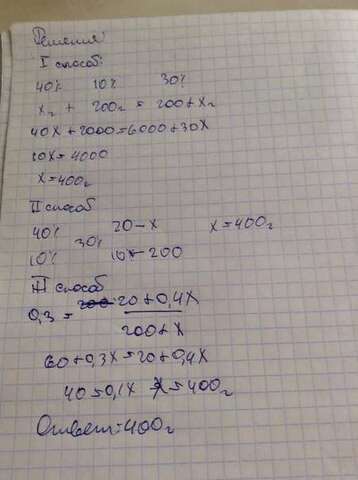 Решения:
I способ:
40% 10% 30%
x г + 200г = 200+x г
40x+2000=6000+30x
10x=4000
x=400г
II способ
40% 20-x x=400г
30%
10% 10x-200
III способ
0,3 = 20+0,4x
200+x
60+0,3x=20+0,4x
40=0,1x x=400г
Ответ=400г